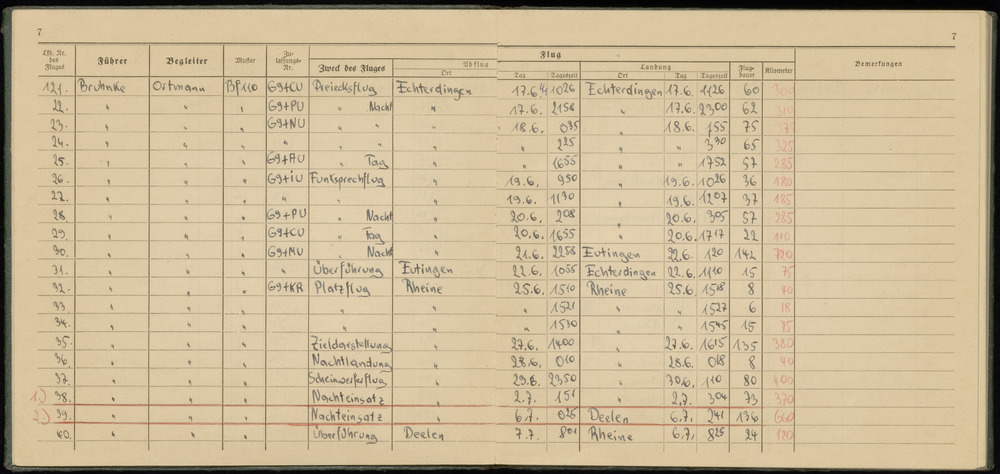 7 7
Lfd. Nr. des Fluges Führer Begleiter Muster Zulassungs-Nr. Zweck des Fluges Flug Abflug Ort Tag Tageszeit Landung Ort Tag Tageszeit Flugdauer Kilometer Bemerkungen
121. Bruhnke Ortmann Bf110 G9+CU Dreiecksflug Echterdingen 17.6. 1026 Echterdingen 17.6. 1126 60 300
22. " " " G9+PU " Nacht " 17.6. 2158 " 17.6. 2300 62 310
23. " " " G9+NU " " " 18.6. 035 18.6. 155 75 375
24. " " " " " " " " 225 " " 330 65 325
25. " " " G9+AU " Tag " " 1655 " " 1752 57 285
26. " " " G9+iU Funksprechflug " 19.6. 950 19.6. 1026 36 180
27. " " " " " " 19.6. 1130 " 19.6. 1207 37 185
28. " " " G9+PU " Nacht " 20.6. 208 20.6. 305 57 285
29. " " " G9+CU " Tag " 20.6. 1655 " 20.6. 1717 22 110
30. " " " G9+MU " Nacht " 21.6. 2258 Eutingen 22.6. 120 142 720
31. " " " " Überführung Eutingen 22.6. 1055 Echterdingen 22.6. 1110 15 75
32. " " " G9+KR Platzflug Rheine 25.6. 1510 Rheine 25.6. 1518 8 40
33. " " " " " " 1521 " " 1527 6 18
34. " " " " " " 1530 " " 1545 15
35. " " " Zieldarstellung " 27.6. 1400 " 27.6. 1615 135 380
36. " " " Nachtlandung " 28.6. 010 " 28.6. 018 8 40
37. " " " Scheinwerferflug " 29.6. 2350 " 30.6. 110 80 400
1) 38. " " " Nachteinsatz " 2.7. 151 " 2.7. 304 73 370
2) 39. " " " Nachteinsatz " 6.7. 025 Deelen 6.7. 241 136 660
40. " " " Überführung Deelen 7.7. 801 Rheine 6.7. 825 24 120